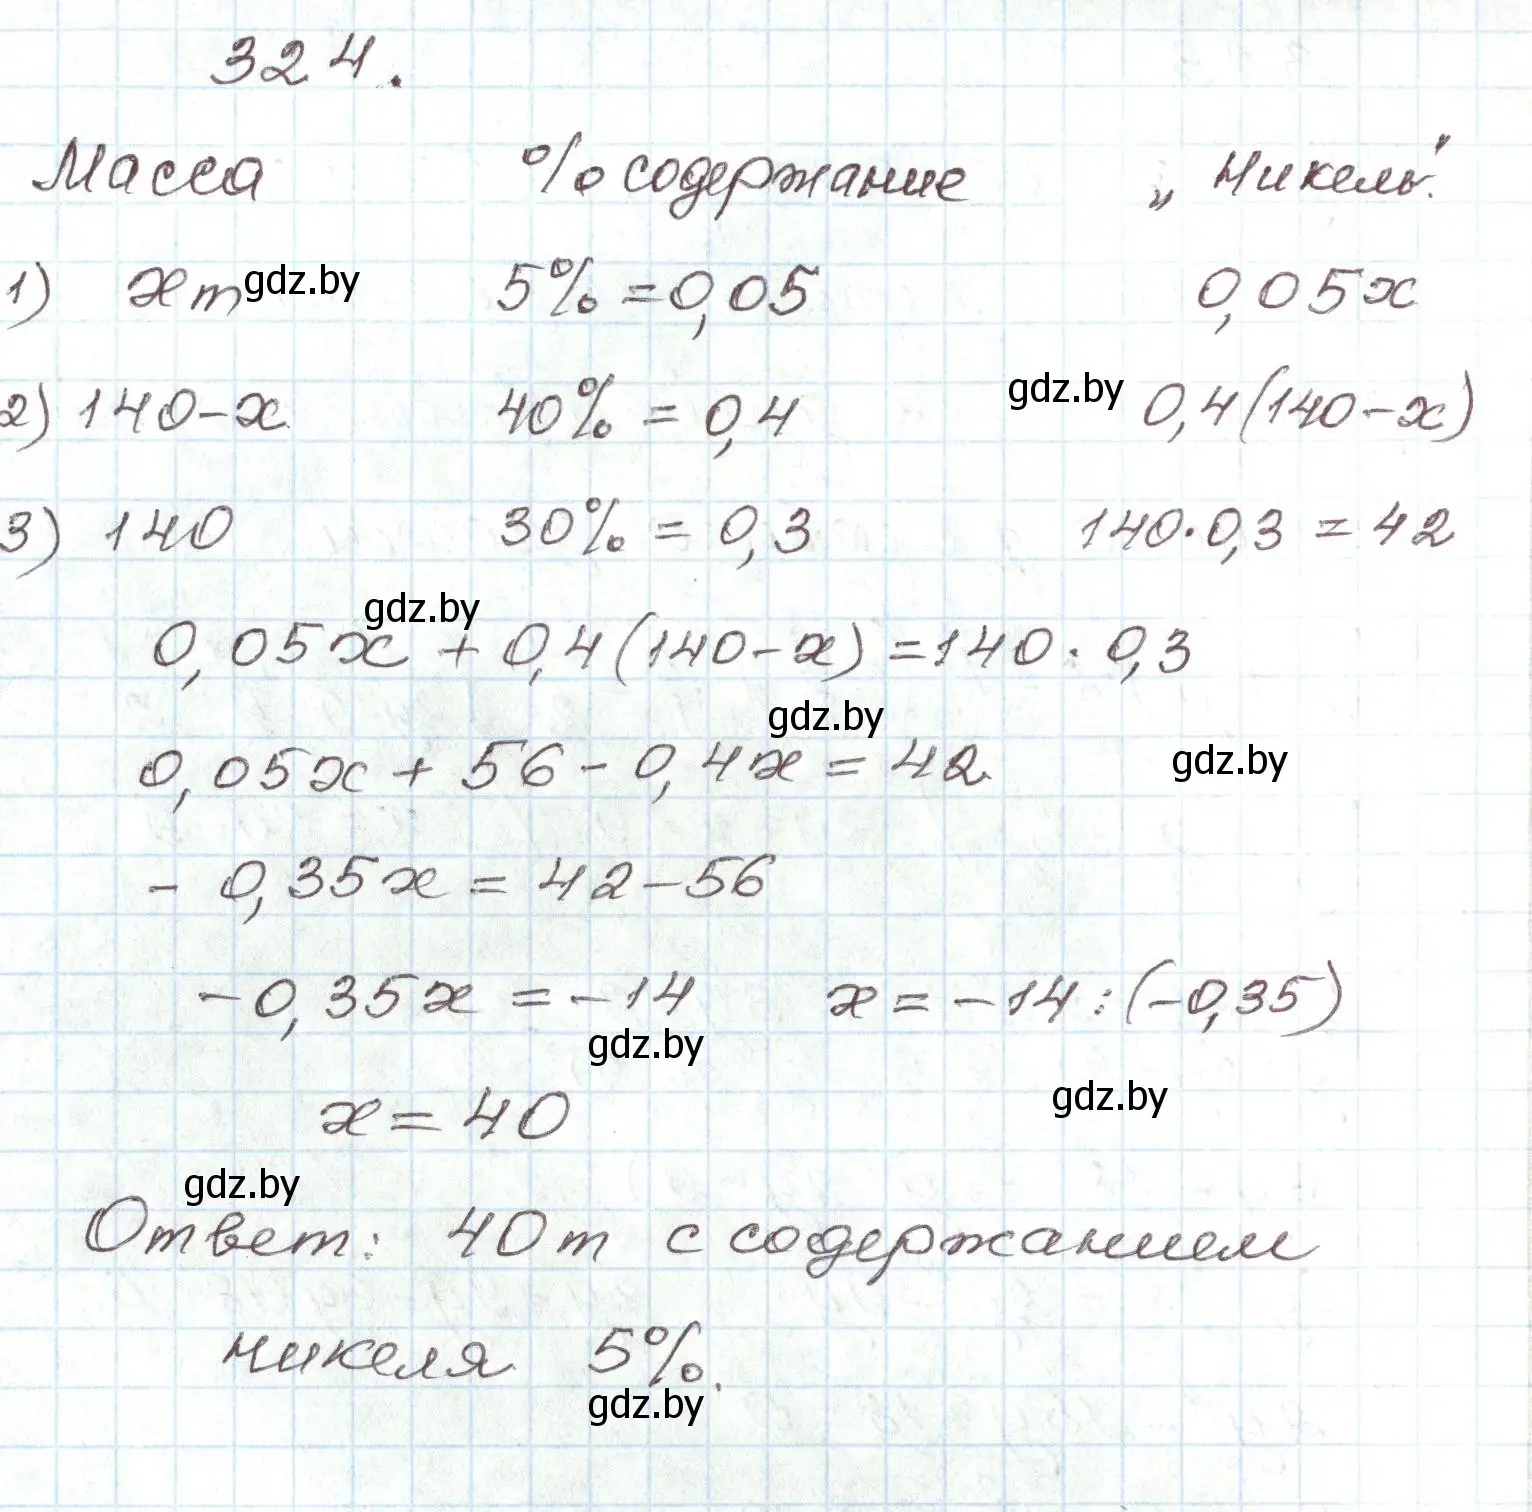 324.
Масса % содержание „Никель".
1) x т gdz.by 5% = 0,05 0,05x
2) 140-x 40% = 0,4 gdz.by 0,4(140-x)
3) 140 30% = 0,3 140·0,3 = 42
gdz.by
0,05x + 0,4(140-x) = 140·0,3
gdz.by
0,05x + 56 - 0,4x = 42 gdz.by
- 0,35x = 42-56
-0,35x = -14 x = -14 : (-0,35)
gdz.by
gdz.by
x = 40
gdz.by
Ответ: 40т с содержанием
никеля 5%.
gdz.by